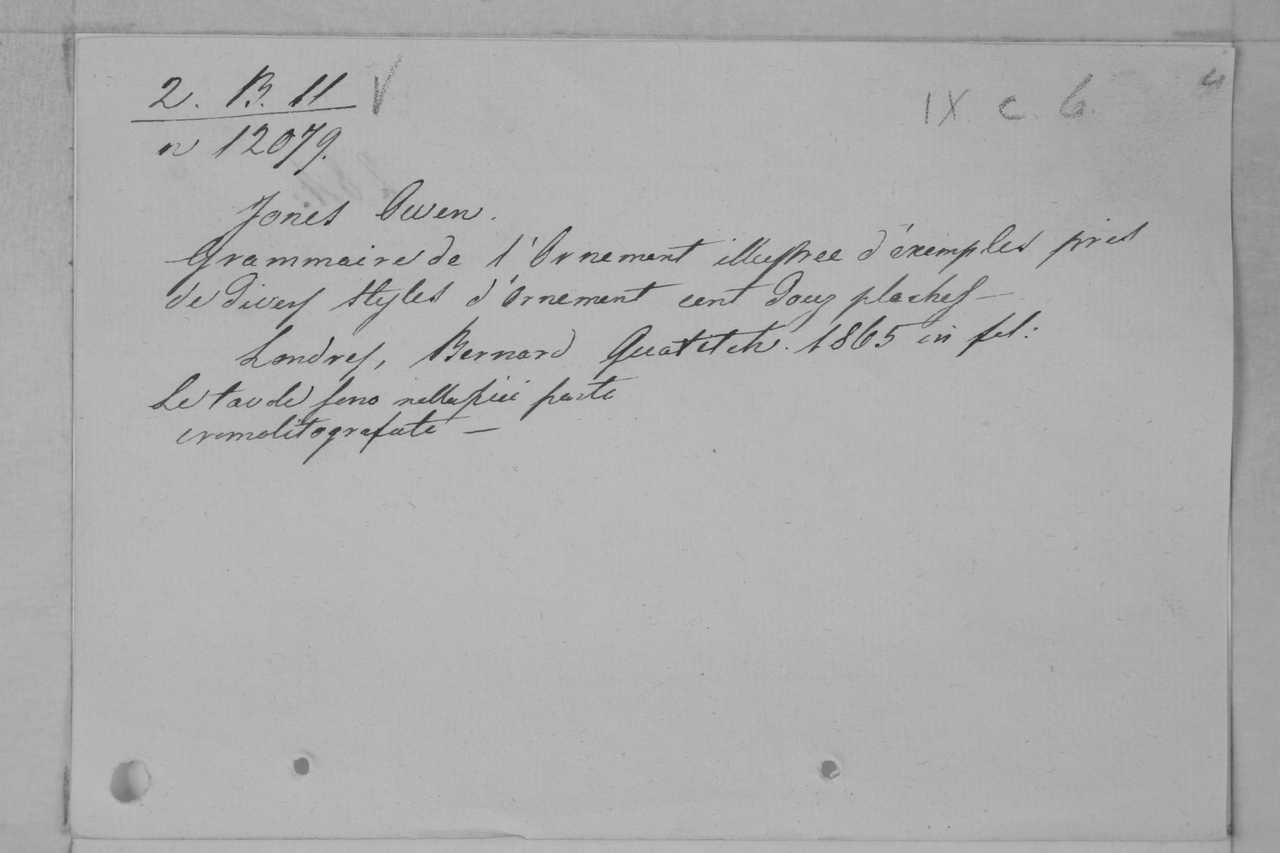 2. B. 11 V
IX. c. 6.
n 12079.
Jones Owen.
Grammaire de l'Ornement illustree d'éxemples pris
de divers styles d'Ornement cent douz plaches -
Londres, Bernard Quatitch. 1865 in fol:
Le tavole sono nella più parte
cromolitografate -